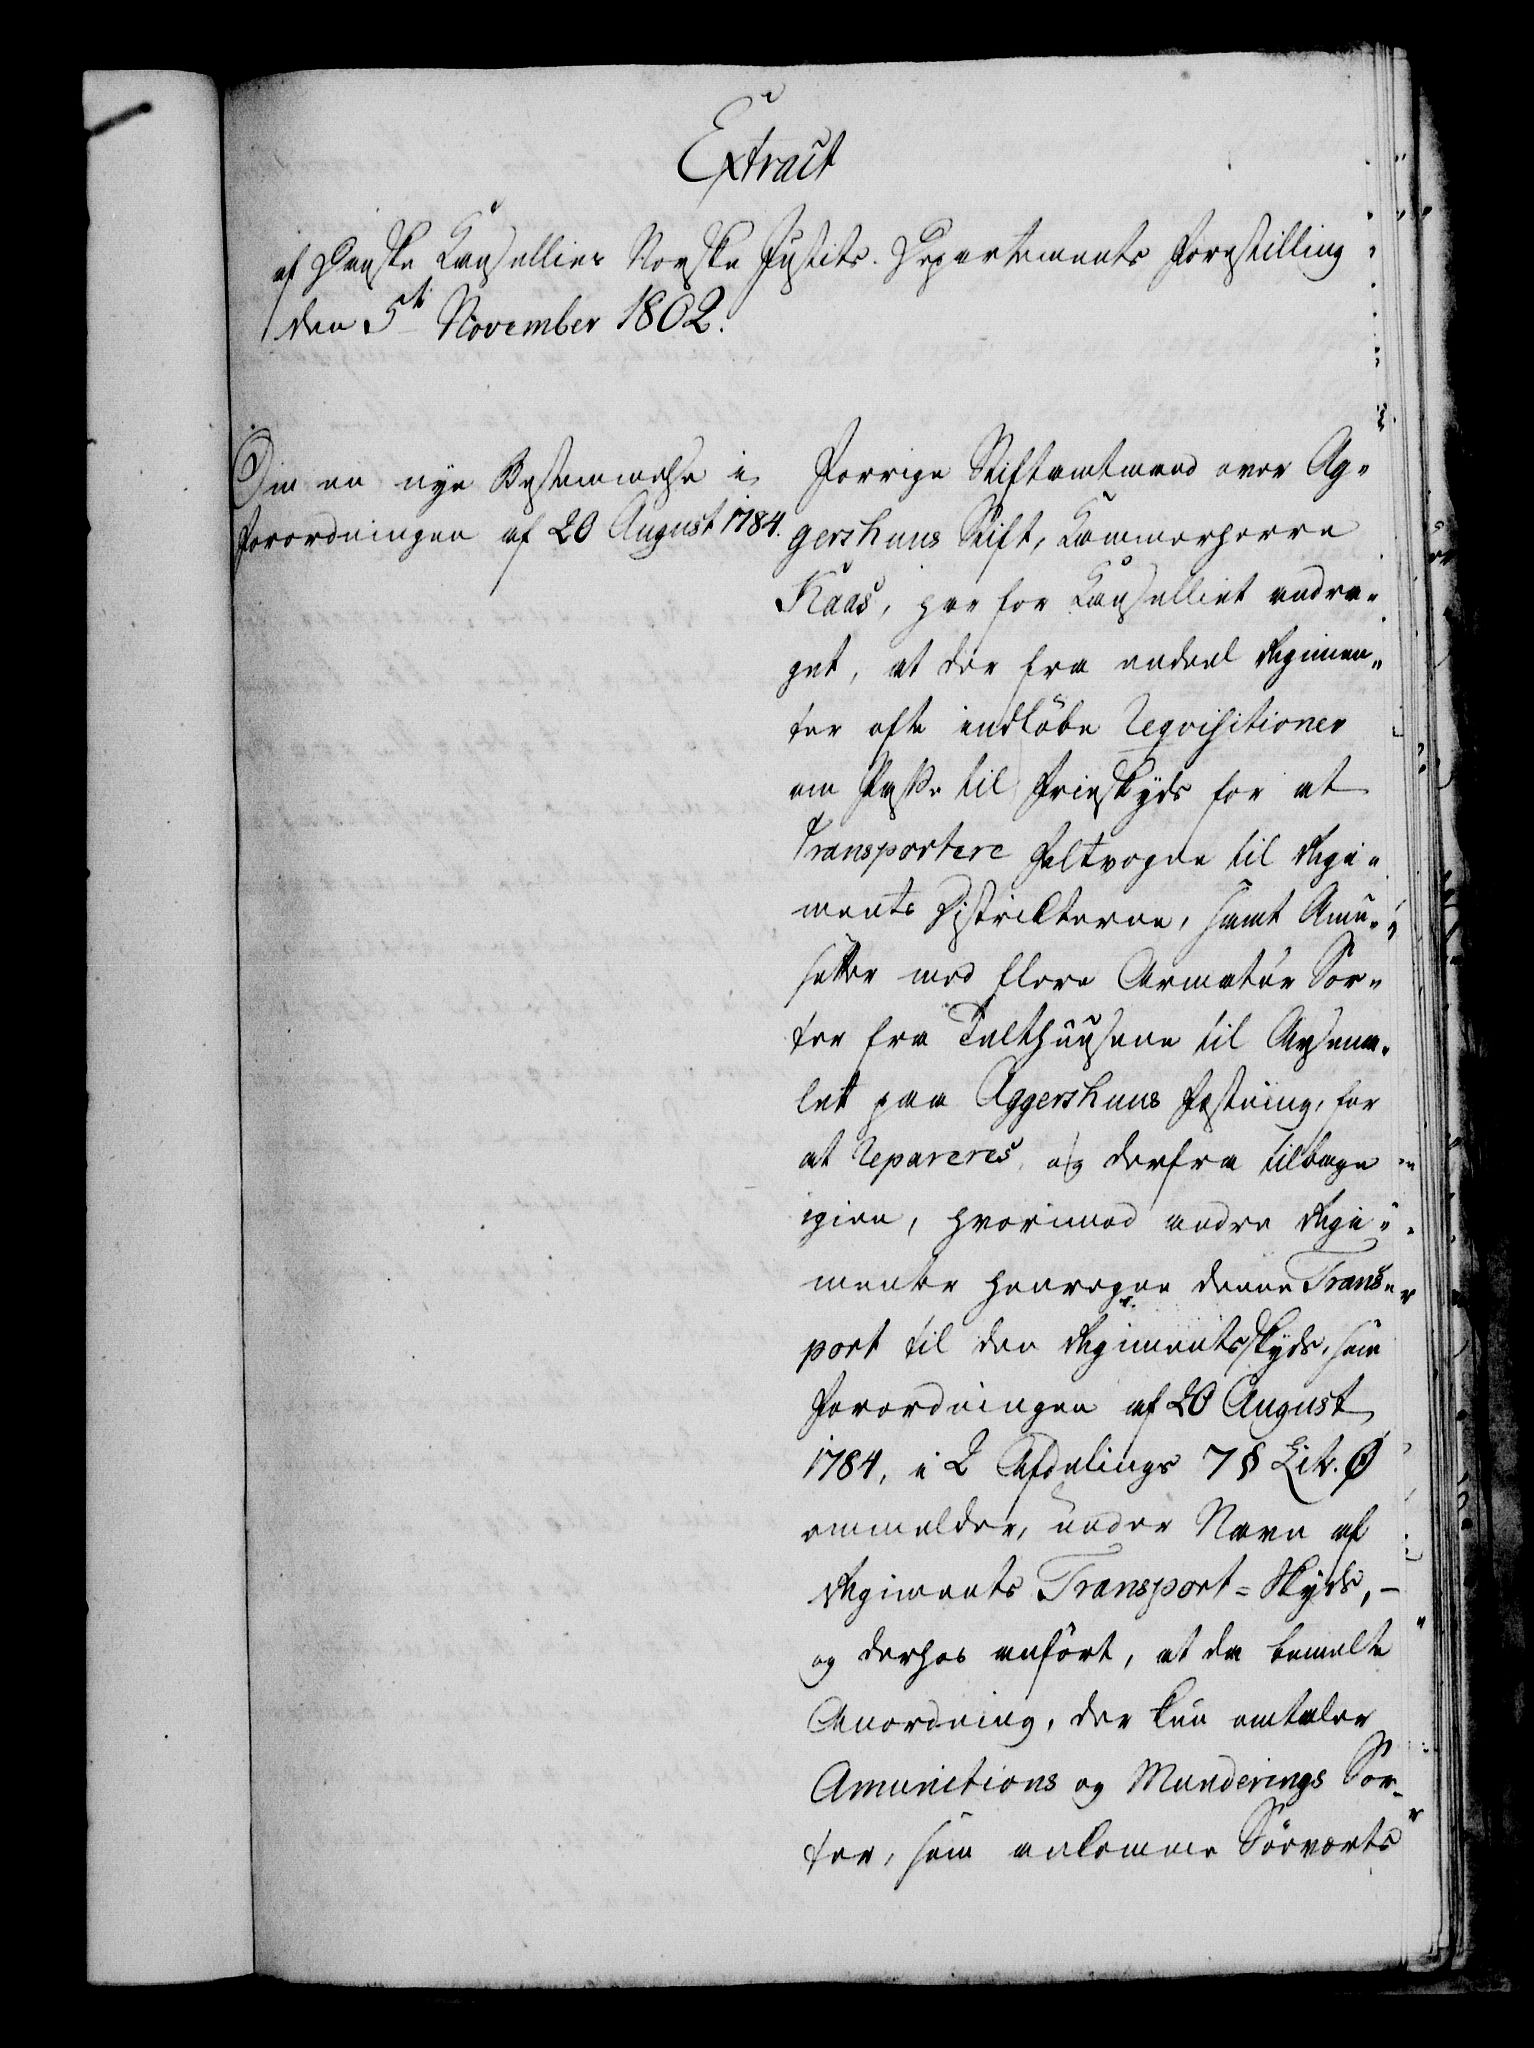 Extract
af Danske Kancelliets Norske Justits-Departements Forestilling
den 5te November 1802.
Om en nye Bestemmelse i
Forordningen af 20 August 1784.
Forrige Stiftamtmand over Ag-
gershuus Stift, Kammerherre
Kaas, har for Kancelliet andra-
get, at der fra endeel Regimen-
ter ofte indløbe Reqvisitioner
om Passe til Frieskyds for at
Transportere Feltvogne til Regi-
ments Distrikterne, samt Amu-
setter med flere Armatur Sor-
ter fra Telthuusene til Arsena-
let paa Aggershuus Fæstning, for
at Repareres, og derfra tilbage
igien, hvorimod andre Regi-
menter henregne denne Trans-
port til den Regimentsskyds, som
Forordningen af 20 August
1784, i 2 Afdelings 7 § Litr. O
ommelder, under Navn af
Regiments Transport-Skyds, -
og derhos anført, at da bemelte
Anordning, der kun omtaler
Amunitions og Munderings Sor-
ter, som ankomme Søeværts